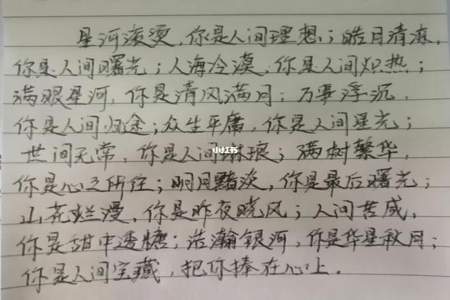 星河滚烫,你是人间理想;皓月清凉,
你是人间曙光;人海冷漠,你是人间炽热;
满眼星河,你是清风满月;万事浮沉,
你是人间归途;众生平庸,你是人间星光;
世间无常,你是人间琳琅;满树繁华,
你是心之所往;明月黯淡,你是最后曙光;
山花烂漫,你是昨夜晓风;人间苦咸,
你是甜中透糖;浩瀚银河,你是华星秋月;
你是人间宝藏,把你捧在心上.
小红书